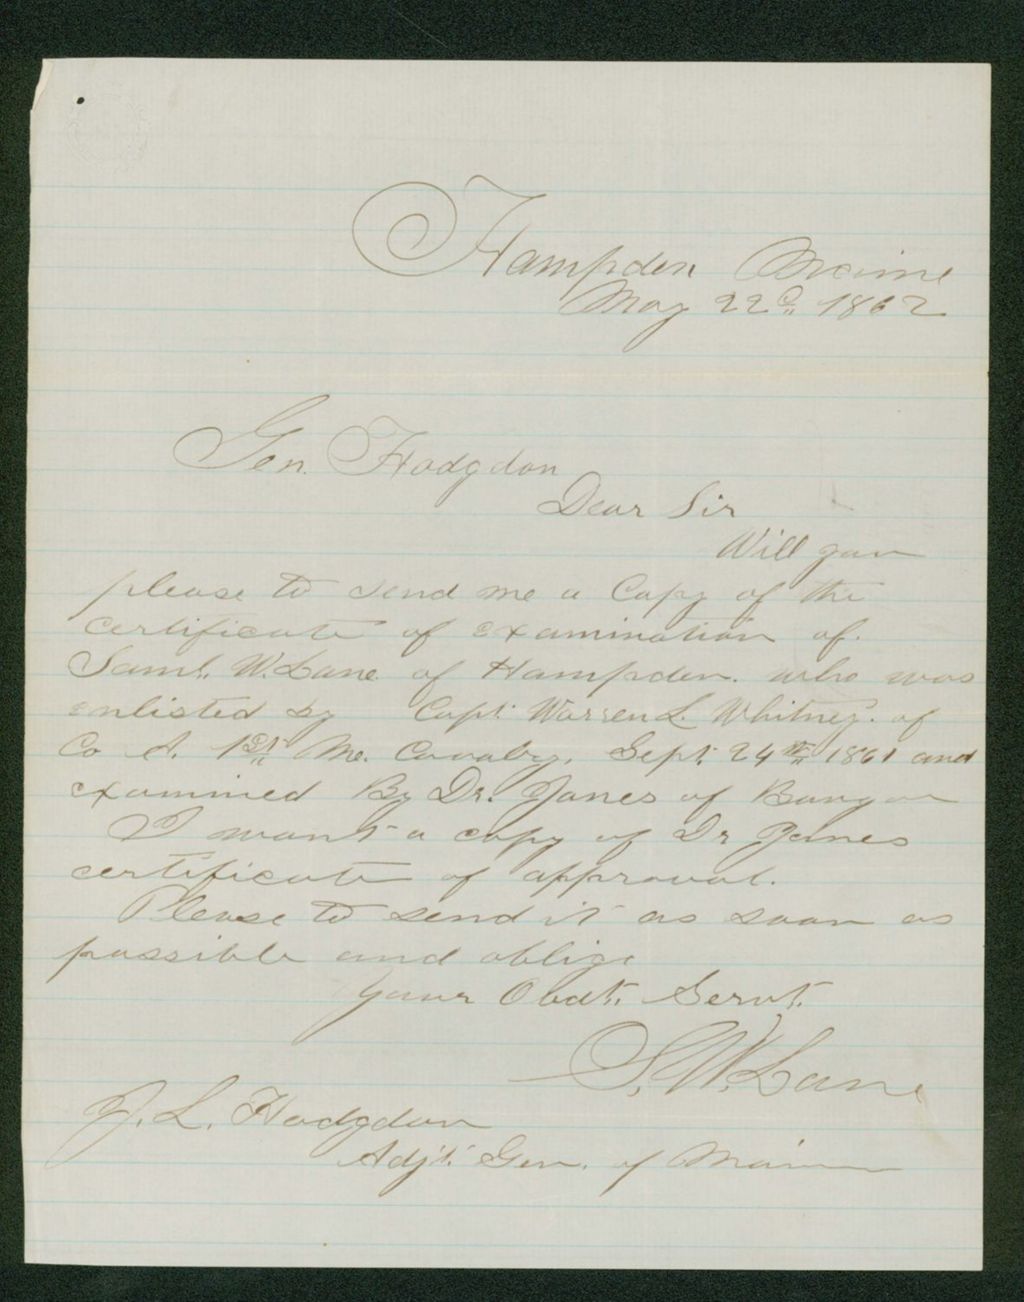 Hampden Maine
May 22d 1862
Gen. Hodgdon
Dear Sir
Will you
please to send me a Copy of the
certificate of examination of.
Saml. W. Lane of Hampden. who was
enlisted by Capt. Warren L. Whitney. of
Co A. 1st Me. Cavalry, Sept. 24th 1861 and
examined By Dr. Jones of Bangor
I want a copy of Dr Jones
certificate of approval.
Please to send it as soon as
possible and oblige
Your Obdt. Servt.
S. W. Lane
J. L. Hodgdon
Adjt. Gen. of Maine